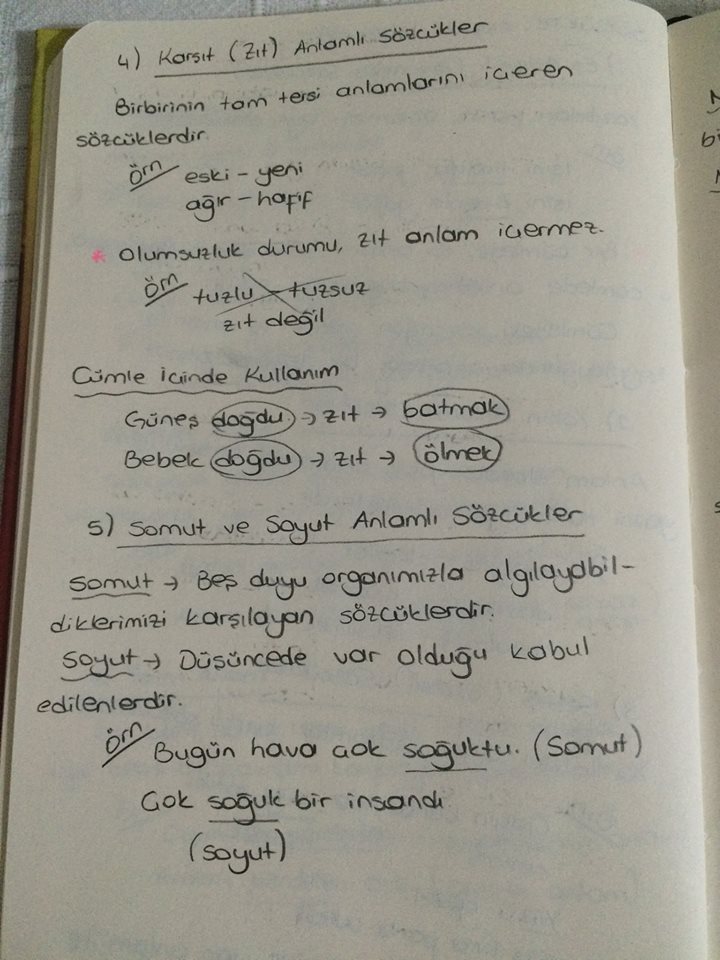 4) Karşıt (Zıt) Anlamlı Sözcükler
Birbirinin tam tersi anlamlarını içeren
sözcüklerdir.
Örn eski - yeni
ağır - hafif
* Olumsuzluk durumu, zıt anlam içermez.
Örn tuzlu - tuzsuz
zıt değil
Cümle İçinde Kullanım
Güneş doğdu → zıt → batmak
Bebek doğdu → zıt → ölmek
5) Somut ve Soyut Anlamlı Sözcükler
Somut → Beş duyu organımızla algılayabil-
diklerimizi karşılayan sözcüklerdir.
Soyut → Düşüncede var olduğu kabul
edilenlerdir.
Örn Bugün hava çok soğuktu. (Somut)
Çok soğuk bir insandı
(soyut)